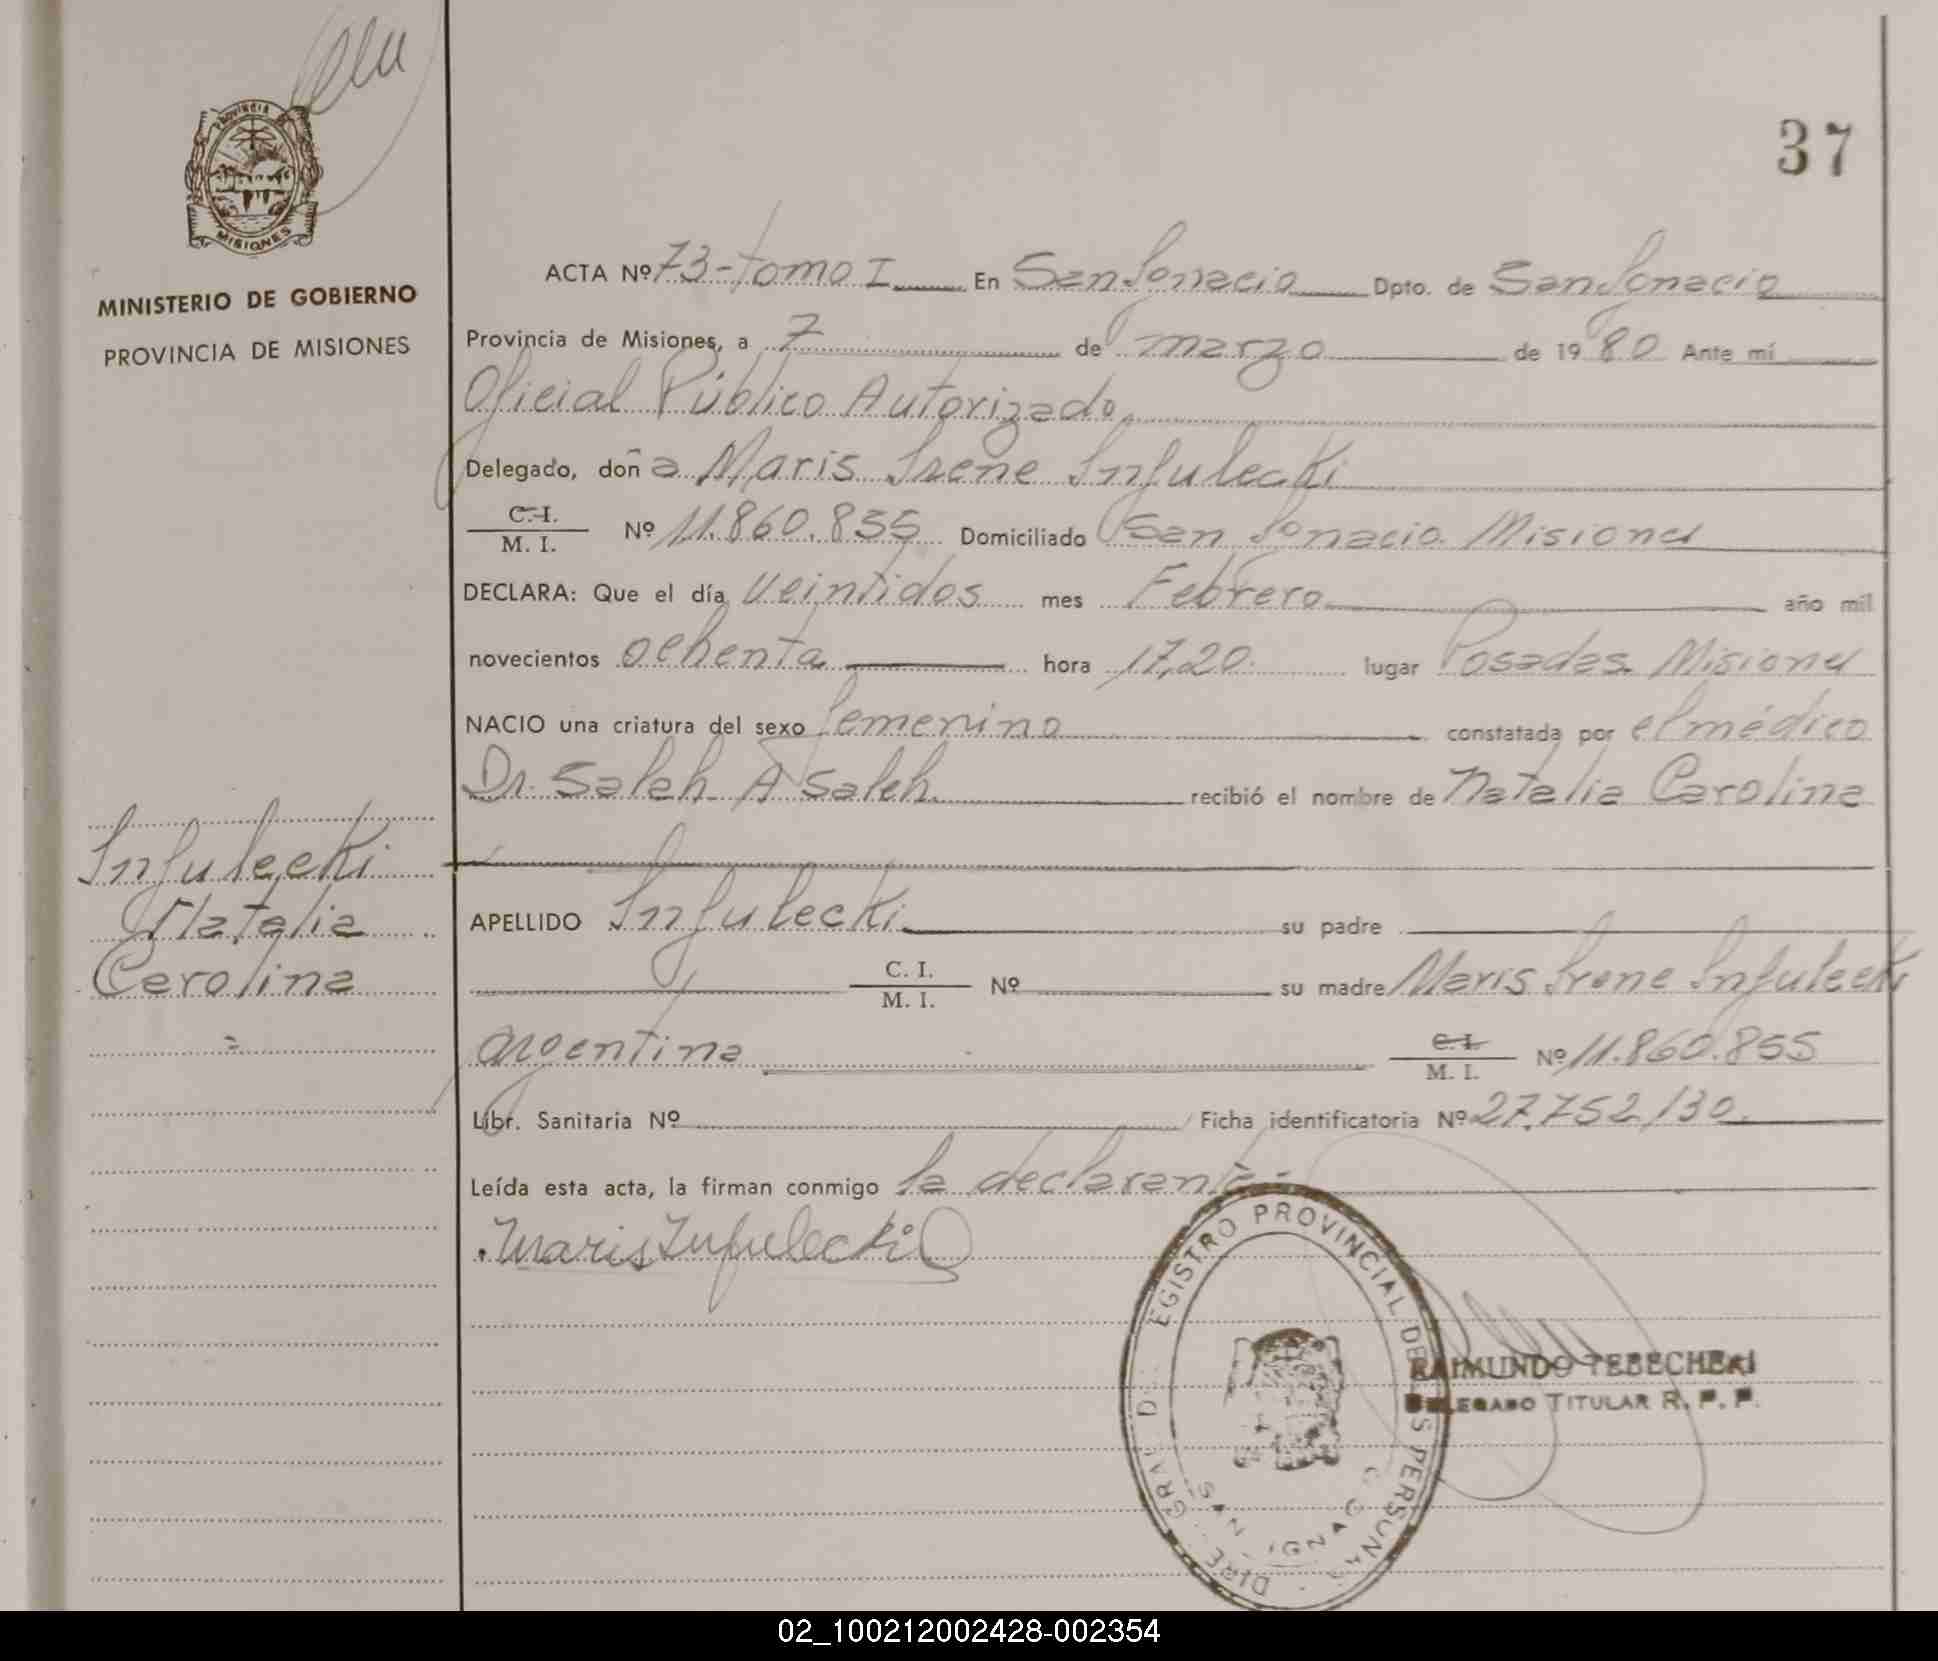 37
PROVINCIA DE
MISIONES
MINISTERIO DE GOBIERNO
PROVINCIA DE MISIONES
ACTA Nº 73-tomo I En San Ignacio Dpto. de San Ignacio
Provincia de Misiones, a 7 de marzo de 1980 Ante mí
Oficial Público Autorizado
Delegado, doña Maris Irene Infulecki
C.I.
M. I. Nº 11.860.855 Domiciliado San Ignacio Misiones
DECLARA: Que el día veintidos mes Febrero año mil
novecientos ochenta hora 17,20 lugar Posadas Misiones
NACIO una criatura del sexo femenino constatada por el médico
Dr. Saleh A Saleh recibió el nombre de Natalia Carolina
Infulecki
Natalia
Carolina
=
APELLIDO Infulecki su padre
C. I.
M. I. Nº su madre Maris Irene Infulecki
argentina C.I.
M. I. Nº 11.860.855
Libr. Sanitaria Nº Ficha identificatoria Nº 27.752/30.
Leída esta acta, la firman conmigo la declarante.-
Maris Infulecki
EGISTRO PROVINCIAL DE
SAN IGNAC
RAIMUNDO TEBECHERI
DELEGADO TITULAR R. P. P.
02_100212002428-002354